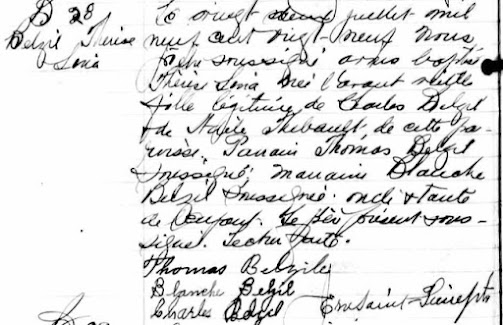 B 28
Belzil Thérèse
Sonia
Le vingt deux juillet mil
neuf cent vingt-neuf nous
Prêtre soussigné avons baptisé
Thérèse Sonia née l'avant veille
fille légitime de Charles Belzil
& de Marie Thibault, de cette pa-
roisse. Parrain Thomas Belzil
soussigné; marraine Blanche
Belzil soussignée. oncle & tante
de l'enfant. Le père présent sous-
signé. Lecture faite.
Thomas Belzile
Blanche Belzil
Charles Belzil